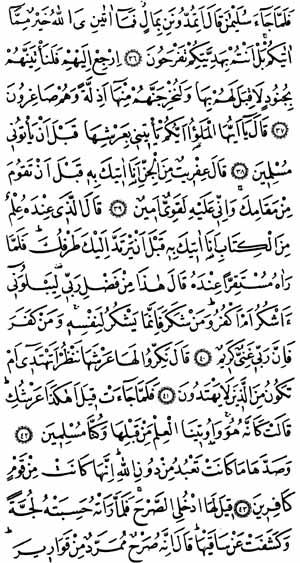 فَلَمَّا جَاءَ سُلَيْمٰنَ قَالَ اَتُمِدُّونَنِ بِمَالٍ فَمَٓا اٰتٰينِ‌يَ اللّٰهُ خَيْرٌ مِمَّٓا
اٰتٰيكُمْ بَلْ اَنْتُمْ بِهَدِيَّتِكُمْ تَفْرَحُونَ ﴿٣٦﴾ اِرْجِعْ اِلَيْهِمْ فَلَنَأْتِيَنَّهُمْ
بِجُنُودٍ لَا قِبَلَ لَهُمْ بِهَا وَلَنُخْرِجَنَّهُمْ مِنْهَٓا اَذِلَّةً وَهُمْ صَاغِرُونَ
﴿٣٧﴾ قَالَ يَٓا اَيُّهَا الْمَلَؤُ۬ا اَيُّكُمْ يَأْتِينِي بِعَرْشِهَا قَبْلَ اَنْ يَأْتُونِي
مُسْلِمِينَ ﴿٣٨﴾ قَالَ عِفْرِيتٌ مِنَ الْجِنِّ اَنَا۬ اٰتِيكَ بِهِ قَبْلَ اَنْ تَقُومَ
مِنْ مَقَامِكَ وَاِنِّي عَلَيْهِ لَقَوِيٌّ اَمِينٌ ﴿٣٩﴾ قَالَ الَّذِي عِنْدَهُ عِلْمٌ
مِنَ الْكِتَابِ اَنَا۬ اٰتِيكَ بِهِ قَبْلَ اَنْ يَرْتَدَّ اِلَيْكَ طَرْفُكَ فَلَمَّا
رَاٰهُ مُسْتَقِرًّا عِنْدَهُ قَالَ هٰذَا مِنْ فَضْلِ رَبِّي لِيَبْلُوَنِٓي
ءَاَشْكُرُ اَمْ اَكْفُرُ وَمَنْ شَكَرَ فَاِنَّمَا يَشْكُرُ لِنَفْسِهِ وَمَنْ كَفَرَ
فَاِنَّ رَبِّي غَنِيٌّ كَرِيمٌ ﴿٤٠﴾ قَالَ نَكِّرُوا لَهَا عَرْشَهَا نَنْظُرْ اَتَهْتَدِٓي اَمْ
تَكُونُ مِنَ الَّذِينَ لَا يَهْتَدُونَ ﴿٤١﴾ فَلَمَّا جَاءَتْ قِيلَ اَهٰكَذَا عَرْشُكِ
قَالَتْ كَاَنَّهُ هُوَ وَاُو۫تِينَا الْعِلْمَ مِنْ قَبْلِهَا وَكُنَّا مُسْلِمِينَ ﴿٤٢﴾
وَصَدَّهَا مَا كَانَتْ تَعْبُدُ مِنْ دُونِ اللّٰهِ اِنَّهَا كَانَتْ مِنْ قَوْمٍ
كَافِرِينَ ﴿٤٣﴾ قِيلَ لَهَا ادْخُلِي الصَّرْحَ فَلَمَّا رَاَتْهُ حَسِبَتْهُ لُجَّةً
وَكَشَفَتْ عَنْ سَاقَيْهَا قَالَ اِنَّهُ صَرْحٌ مُمَرَّدٌ مِنْ قَوَارِيرَ